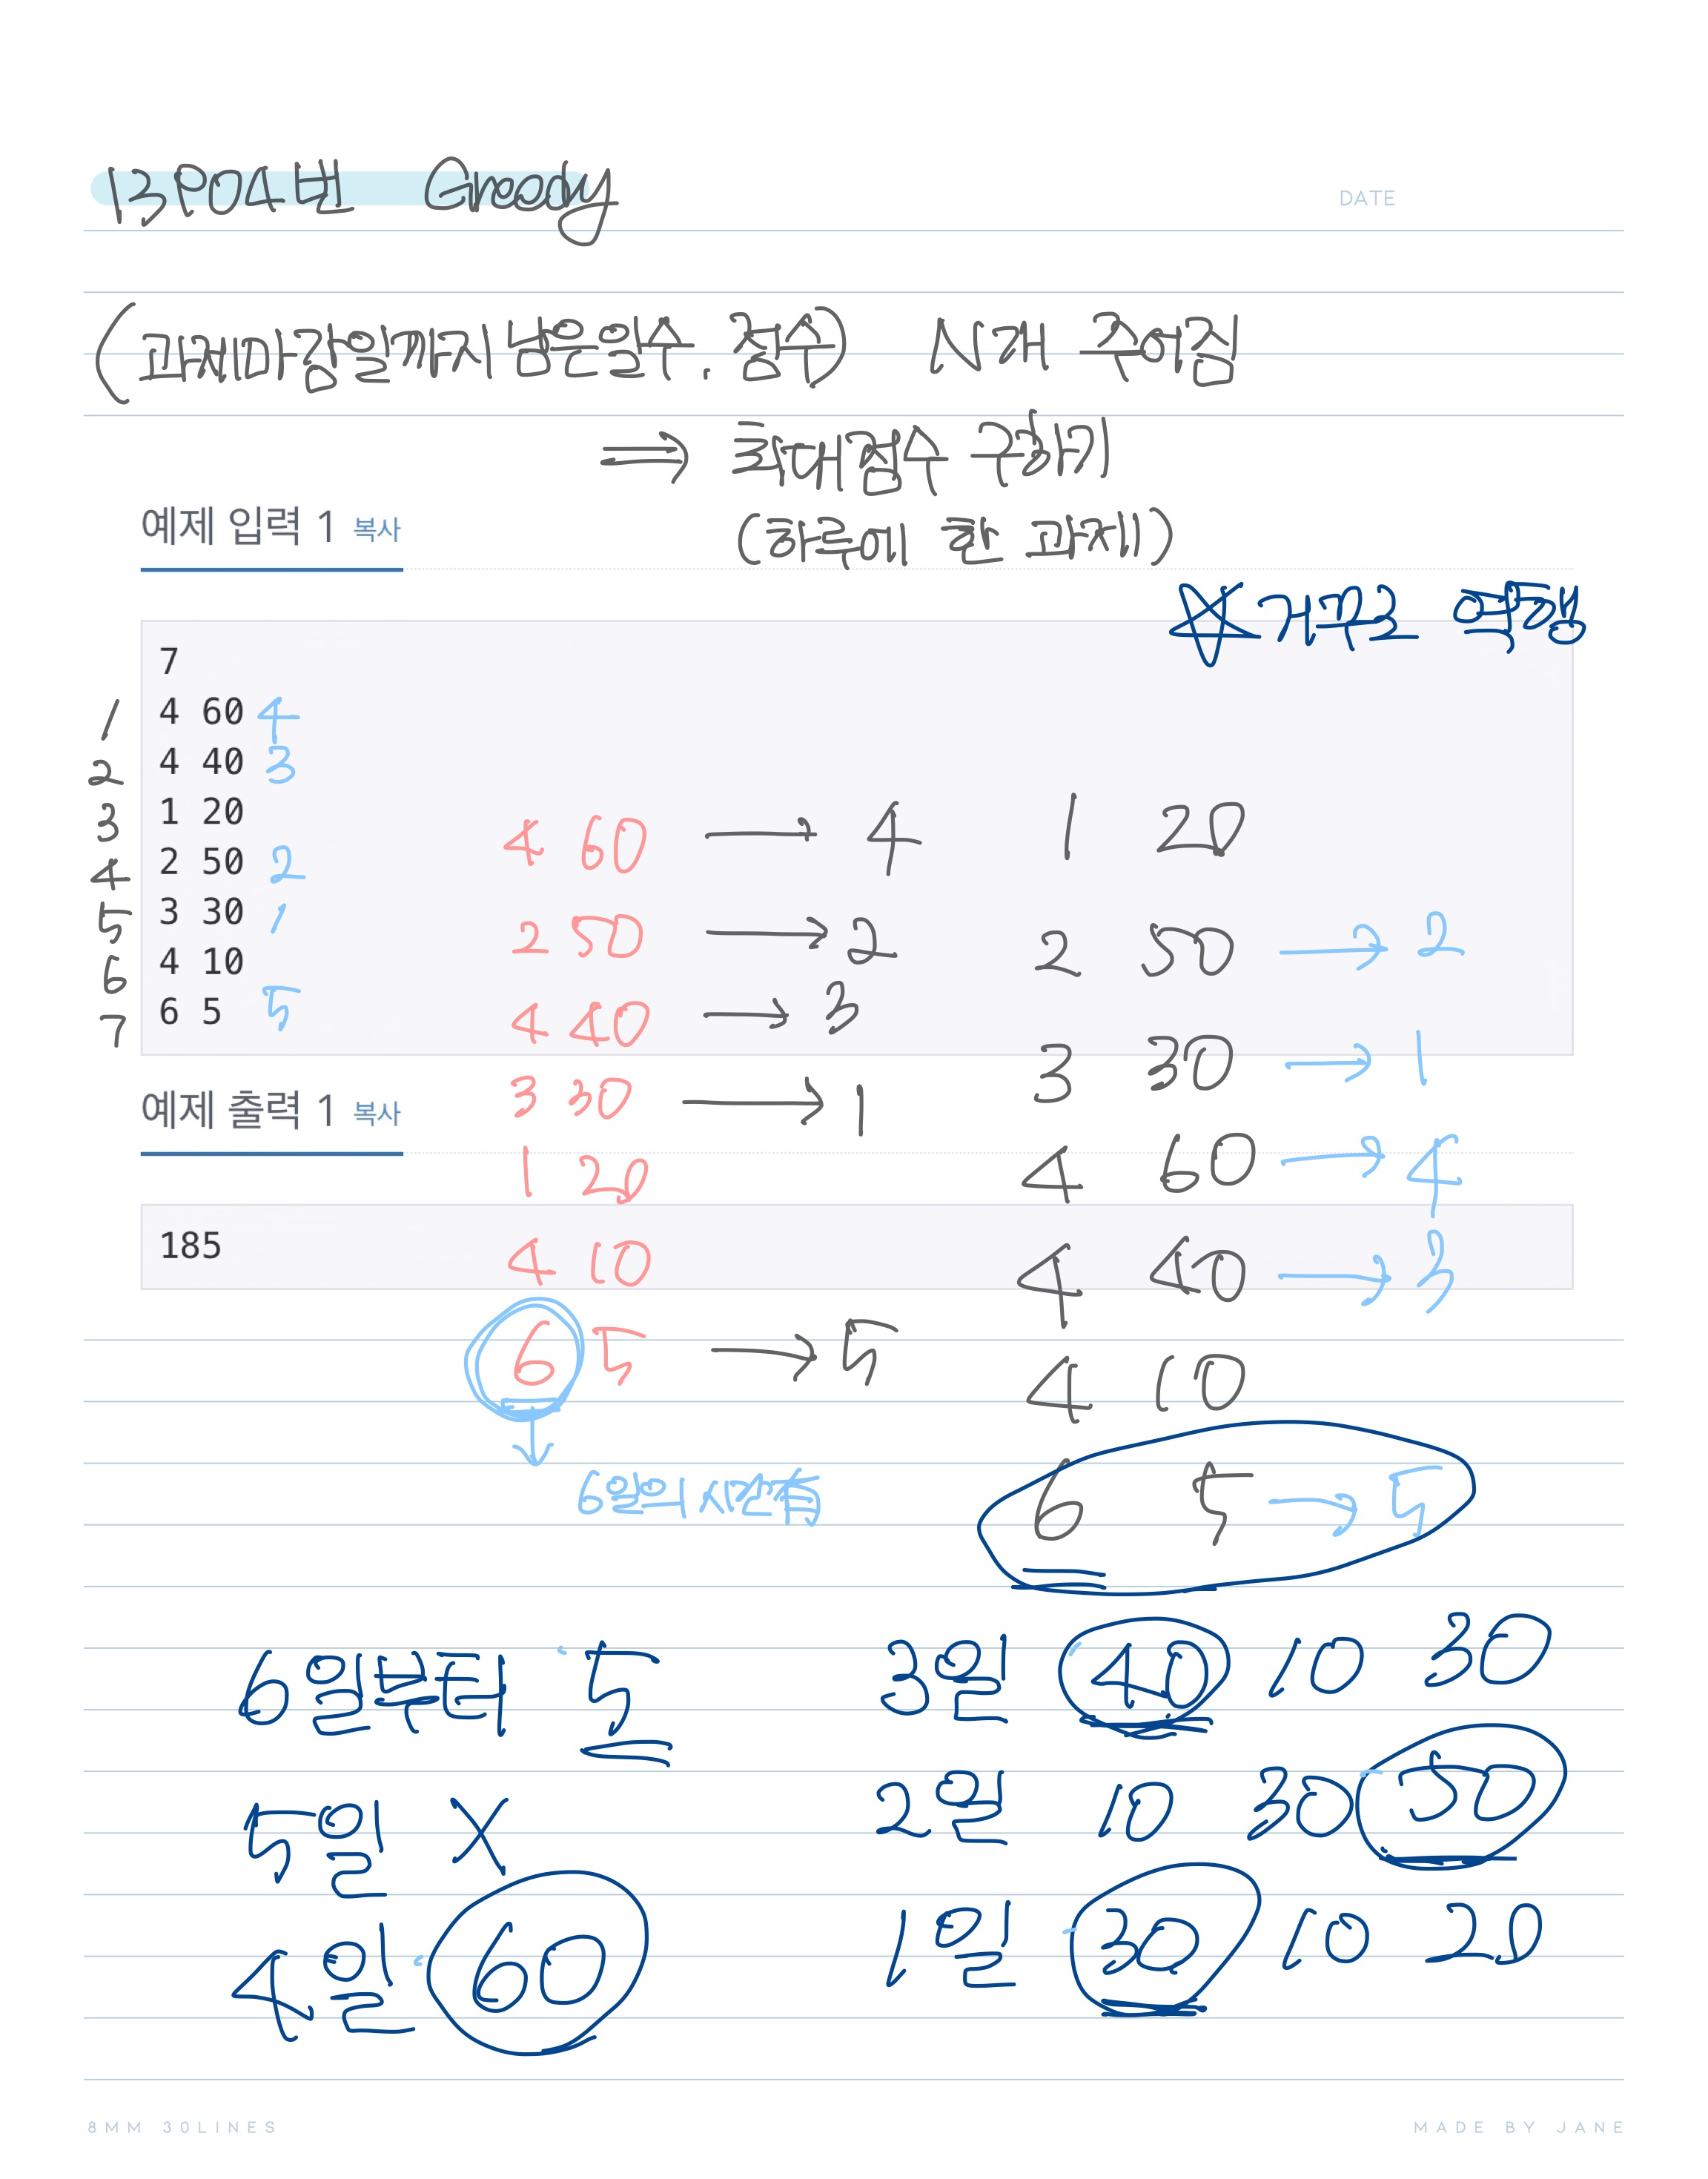 13904번 Greedy
DATE
(과제마감일까지 남은일수, 점수) N개 주어짐
⇒ 최대점수 구하기
(하루에 한 과제)
예제 입력 1 복사
☆거꾸로 역행
7
1 4 60 4
2 4 40 3
3 1 20
4 2 50 2
5 3 30 1
6 4 10
7 6 5 5
4 60 → 4
2 50 → 2
4 40 → 3
3 30 → 1
1 20
4 10
6 5 → 5
6일의 시간有
1 20
2 50 → 2
3 30 → 1
4 60 → 4
4 40 → 3
4 10
6 5 → 5
예제 출력 1 복사
185
6일부터 5
5일 X
4일 60
3일 40 10 30
2일 10 30 50
1일 30 10 20
8MM 30LINES
MADE BY JANE